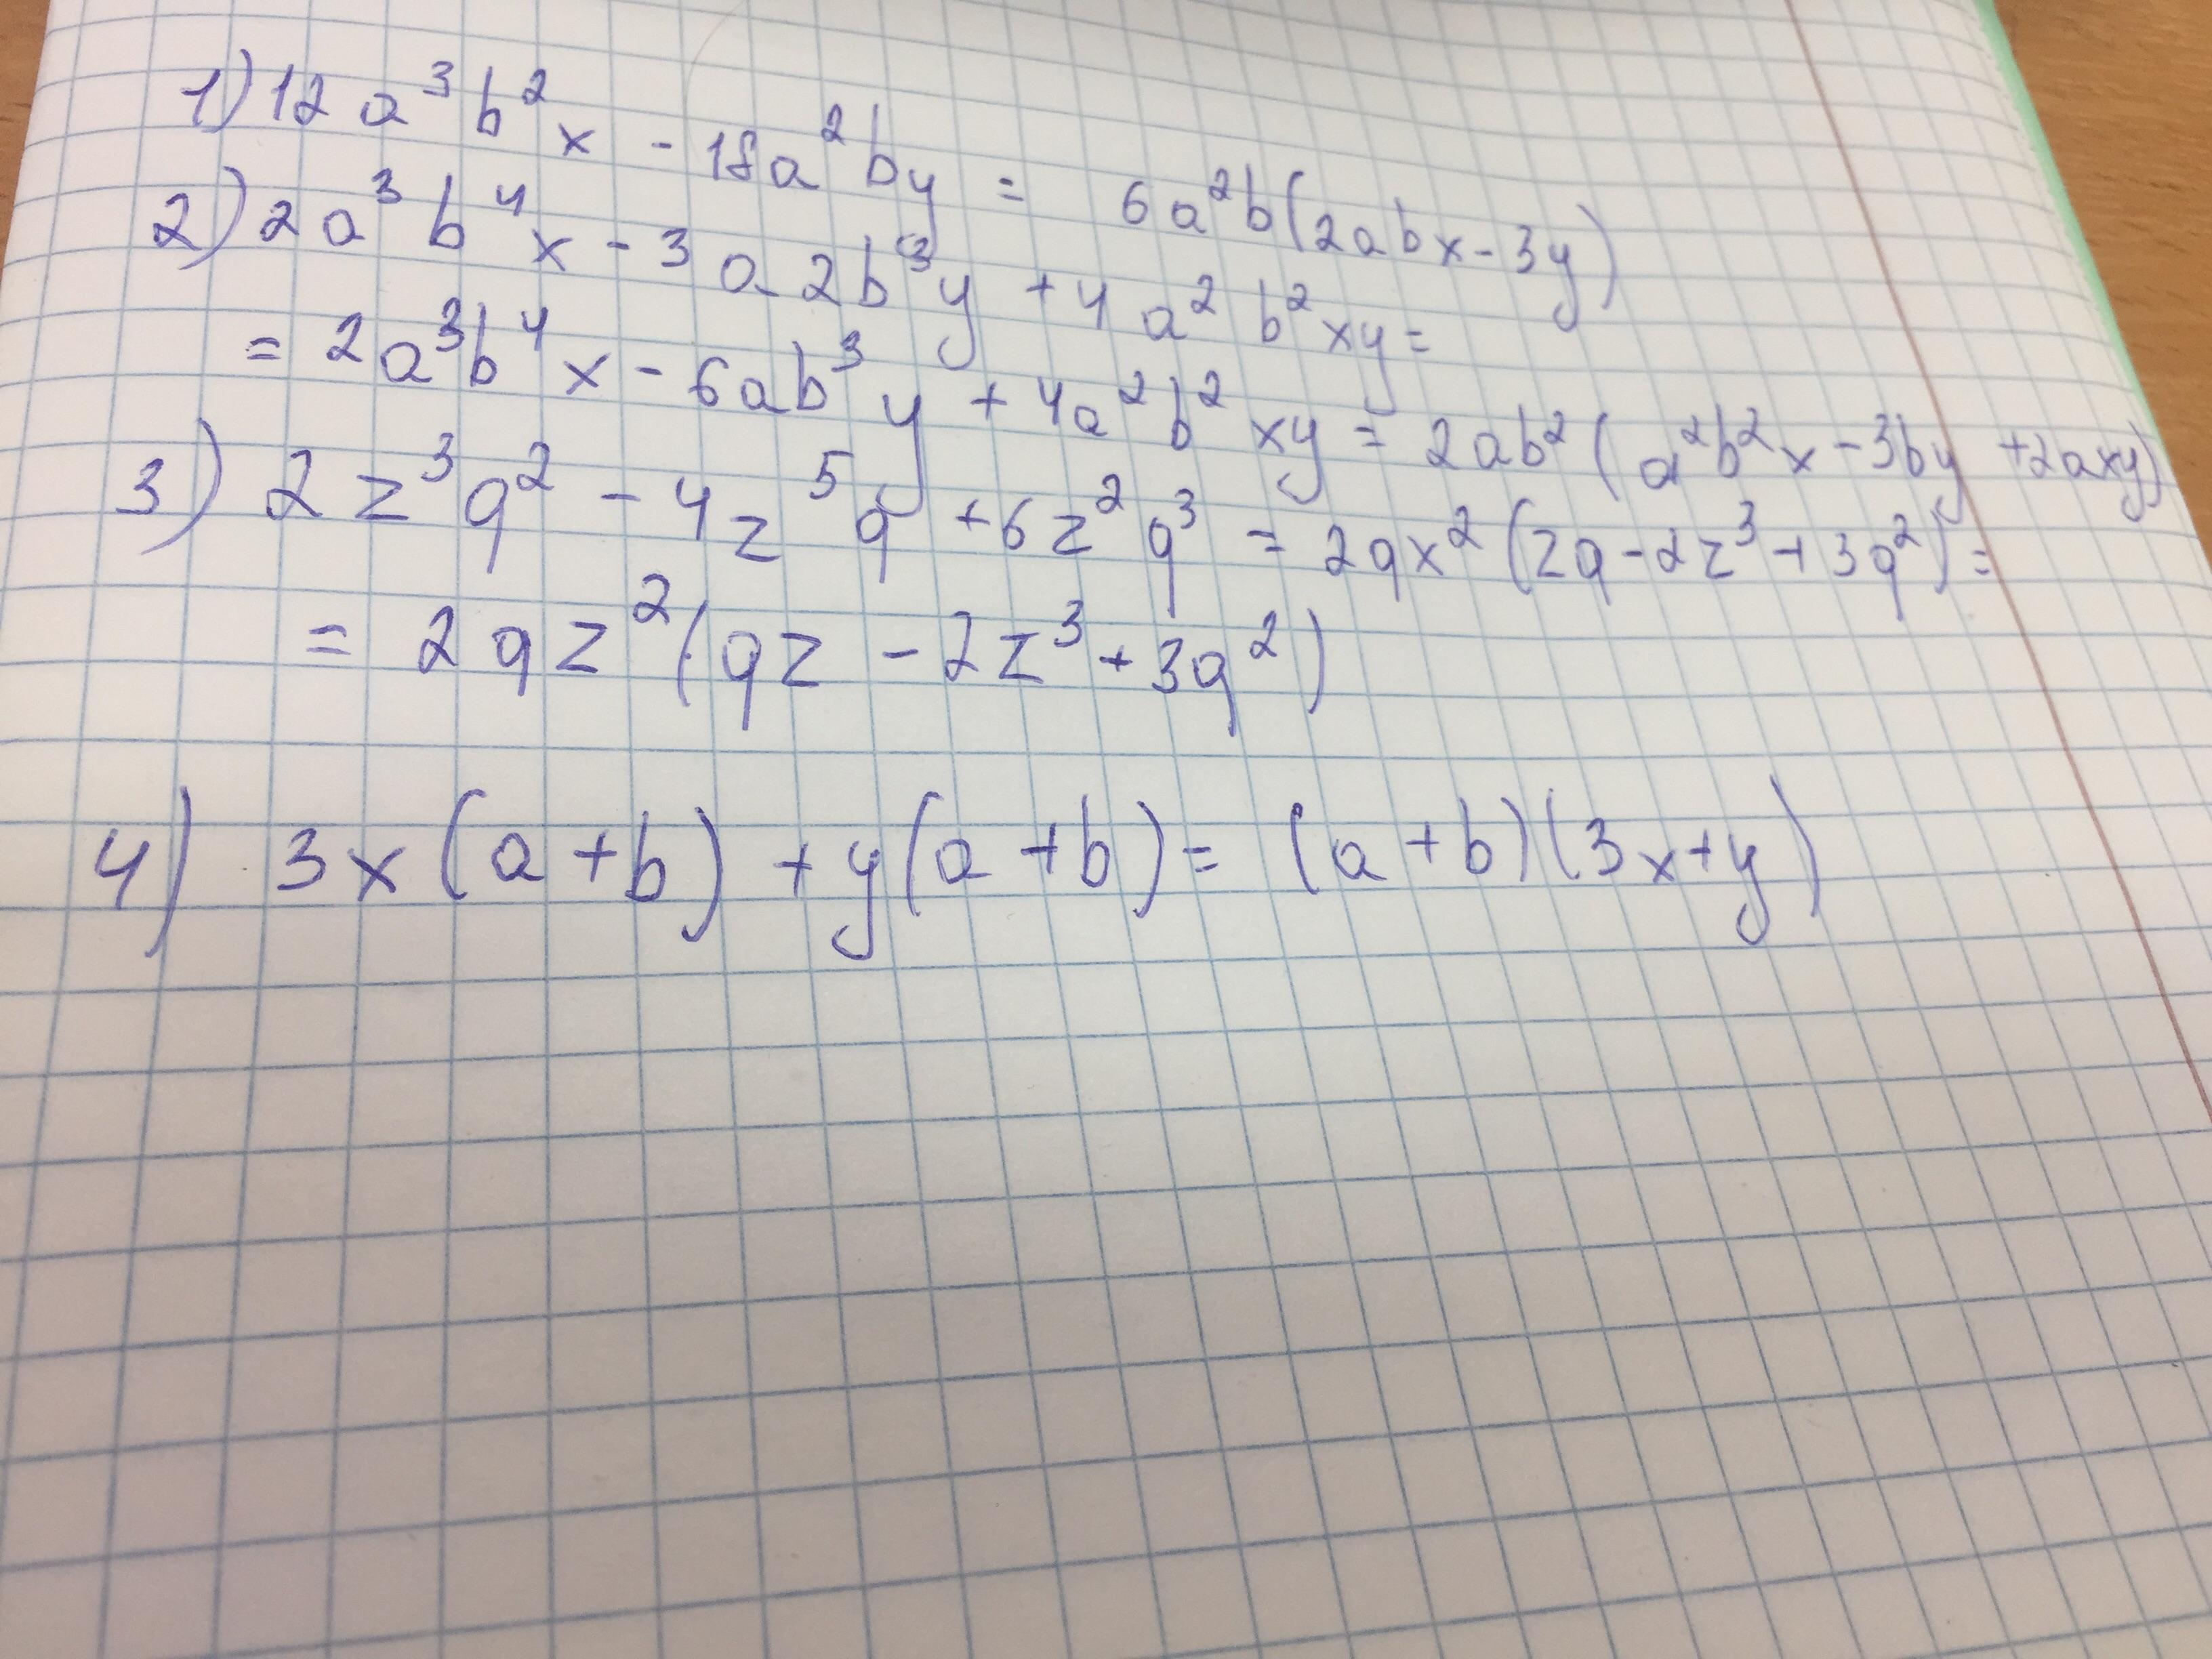 1) 12a³b²x - 18a²by = 6a²b(2abx - 3y)
2) 2a³b⁴x - 3a2b³y + 4a²b²xy =
= 2a³b⁴x - 6ab³y + 4a²b²xy = 2ab²(a²b²x - 3by + 2axy)
3) 2z³q² - 4z⁵q + 6z²q³ = 2qx²(zq - 2z³ + 3q²) =
= 2qz²(qz - 2z³ + 3q²)
4) 3x(a+b) + y(a+b) = (a+b)(3x+y)